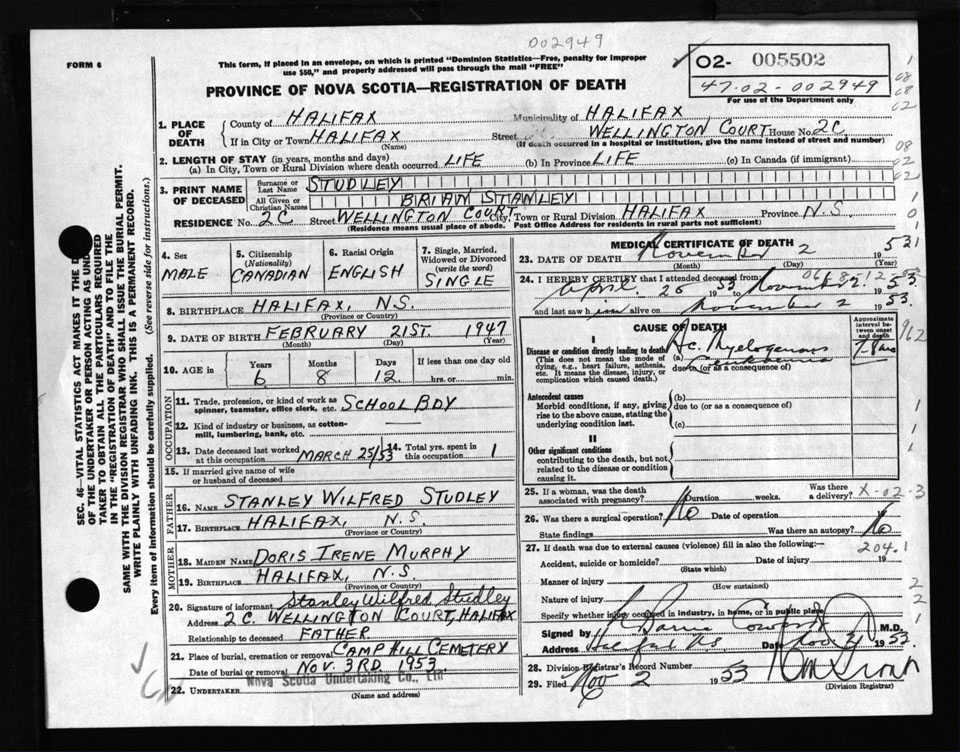 002949
FORM 6
This form, if placed in an envelope, on which is printed "Dominion Statistics—Free, penalty for improper
use $50," and properly addressed will pass through the mail "FREE"
O2- 005502
47-02-002949
For use of the Department only
PROVINCE OF NOVA SCOTIA—REGISTRATION OF DEATH
1. PLACE OF DEATH
County of HALIFAX Municipality of HALIFAX
If in City or Town HALIFAX Street WELLINGTON COURT House No. 2C
(Name) (If death occurred in a hospital or institution, give the name instead of street and number)
2. LENGTH OF STAY (in years, months and days)
(a) In City, Town or Rural Division where death occurred LIFE (b) In Province LIFE (c) In Canada (if immigrant)
3. PRINT NAME OF DECEASED
Surname or Last Name STUDLEY
All Given or Christian Names BRIAN STANLEY
RESIDENCE No. 2C Street WELLINGTON COURT City, Town or Rural Division HALIFAX Province N.S.
(Residence means usual place of abode. Post Office Address for residents in rural parts not sufficient)
4. Sex MALE
5. Citizenship (Nationality) CANADIAN
6. Racial Origin ENGLISH
7. Single, Married, Widowed or Divorced (write the word) SINGLE
8. BIRTHPLACE HALIFAX, N.S.
(Province or Country)
9. DATE OF BIRTH FEBRUARY 21ST. 1947
(Month) (Day) (Year)
10. AGE in Years 6 Months 8 Days 12 If less than one day old
hrs. or min.
OCCUPATION
11. Trade, profession, or kind of work as spinner, teamster, office clerk, etc. SCHOOL BOY
12. Kind of industry or business, as cotton-mill, lumbering, bank, etc. —
13. Date deceased last worked at this occupation MARCH 25/53
14. Total yrs. spent in this occupation 1
15. If married give name of wife or husband of deceased
FATHER
16. NAME STANLEY WILFRED STUDLEY
17. BIRTHPLACE HALIFAX, N.S.
(Province or Country)
MOTHER
18. MAIDEN NAME DORIS IRENE MURPHY
19. BIRTHPLACE HALIFAX, N.S.
(Province or Country)
20. Signature of informant Stanley Wilfred Studley
Address 2C. WELLINGTON COURT, HALIFAX
Relationship to deceased FATHER
21. Place of burial, cremation or removal CAMP HILL CEMETERY
Date of burial or removal NOV. 3RD 1953
22. UNDERTAKER Nova Scotia Undertaking Co., Ltd
(Name and address)
MEDICAL CERTIFICATE OF DEATH
23. DATE OF DEATH November 2 1953
(Month) (Day) (Year)
24. I HEREBY CERTIFY that I attended deceased from
April 26 1953 to November 2 1953.
and last saw him alive on November 2 1953.
CAUSE OF DEATH
Approximate interval between onset and death
I
Disease or condition directly leading to death
(This does not mean the mode of dying, e.g., heart failure, asthenia, etc. It means the disease, injury, or complication which caused death.)
(a) Ac. Myelogenous Leukaemia
due to (or as a consequence of)
Antecedent causes
Morbid conditions, if any, giving rise to the above cause, stating the underlying condition last.
(b)
due to (or as a consequence of)
(c)
II
Other significant conditions
contributing to the death, but not related to the disease or condition causing it.
25. If a woman, was the death associated with pregnancy? Duration weeks. Was there a delivery?
X-02-3
26. Was there a surgical operation? No Date of operation
State findings Was there an autopsy? No
27. If death was due to external causes (violence) fill in also the following:—
204.1
Accident, suicide or homicide? Date of injury 19
(State which)
Manner of injury
(How sustained)
Nature of injury
Specify whether injury occurred in industry, in home, or in public place
Signed by M.D.
Address Halifax NS Date Nov 1953.
28. Division Registrar's Record Number
29. Filed Nov 2 1953
(Division Registrar)
SEC. 46—VITAL STATISTICS ACT MAKES IT THE
OF THE UNDERTAKER OR PERSON ACTING AS
TAKER TO OBTAIN ALL THE PARTICULARS REQUIRED
IN THE "REGISTRATION OF DEATH" AND TO FILE THE
SAME WITH THE DIVISION REGISTRAR WHO SHALL ISSUE THE BURIAL PERMIT.
WRITE PLAINLY WITH UNFADING INK. THIS IS A PERMANENT RECORD.
Every item of information should be carefully supplied. (See reverse side for instructions.)